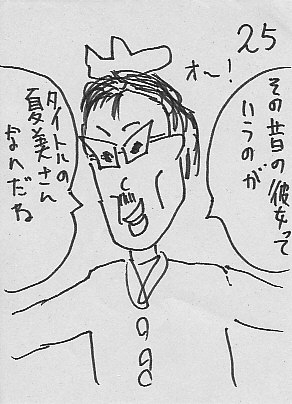 25
オ〜!
その昔の
彼女って
いうのが
タイトルの
夏美さん
なんだね